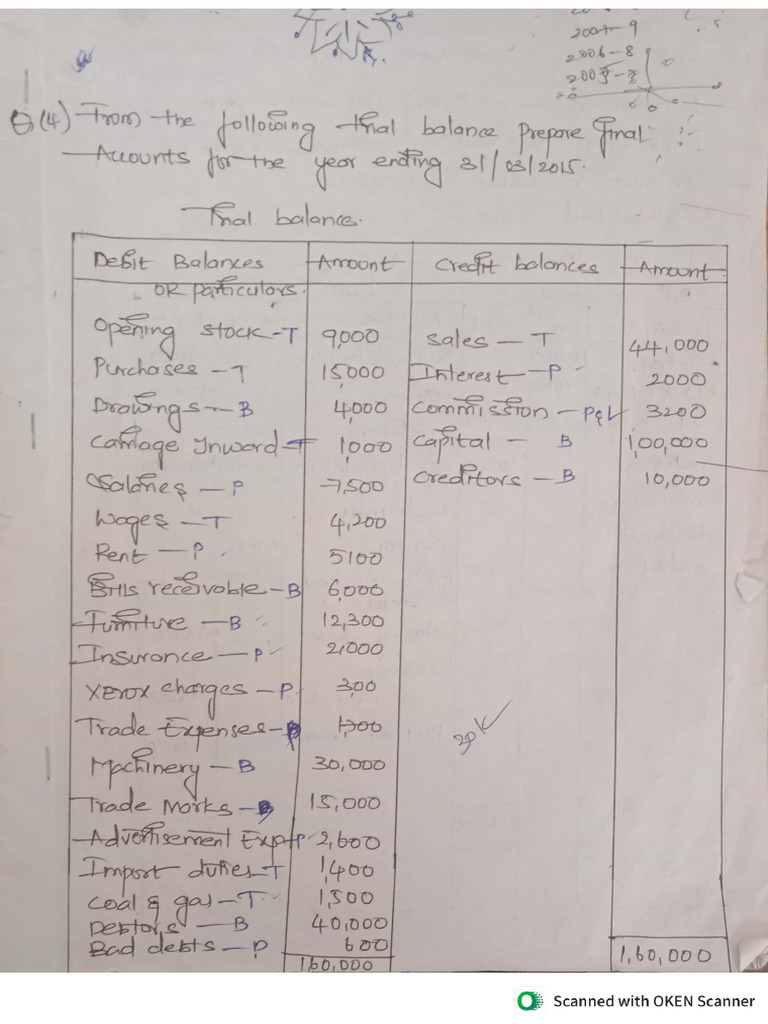 2007-9
2006-8
Q(4) From the following trial balance prepare final
Accounts for the year ending 31/03/2015.
Trial balance.
Debit Balances Amount Credit balances Amount
OR particulars.
Opening stock - T 9,000 Sales - T 44,000
Purchases - T 15,000 Interest - P 2000
Drawings - B 4,000 Commission - P&L 3200
Carriage Inward - T 1,000 Capital - B 1,00,000
Salaries - P 7,500 Creditors - B 10,000
Wages - T 4,200
Rent - P 5100
Bills receivable - B 6,000
Furniture - B 12,300
Insurance - P 2,000
Xerox charges - P 300
Trade Expenses - P 1,700
Machinery - B 30,000
Trade Marks - B 15,000
Advertisement Exp - P 2,600
Import duties - T 1,400
Coal & gas - T 1,500
Debtors - B 40,000
Bad debts - P 600
160,000 1,60,000
Scanned with OKEN Scanner